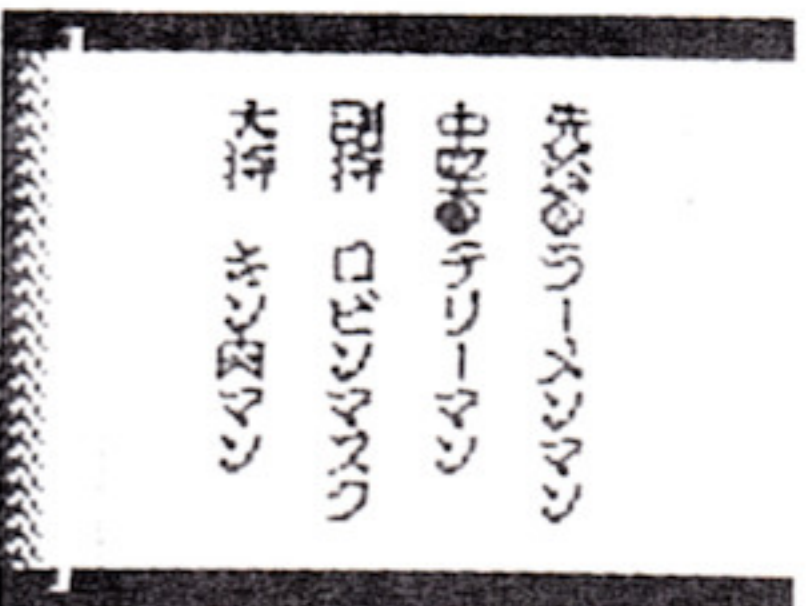 ラーメンマン
中堅 テリーマン
副将 ロビンマスク
大将 キン肉マン